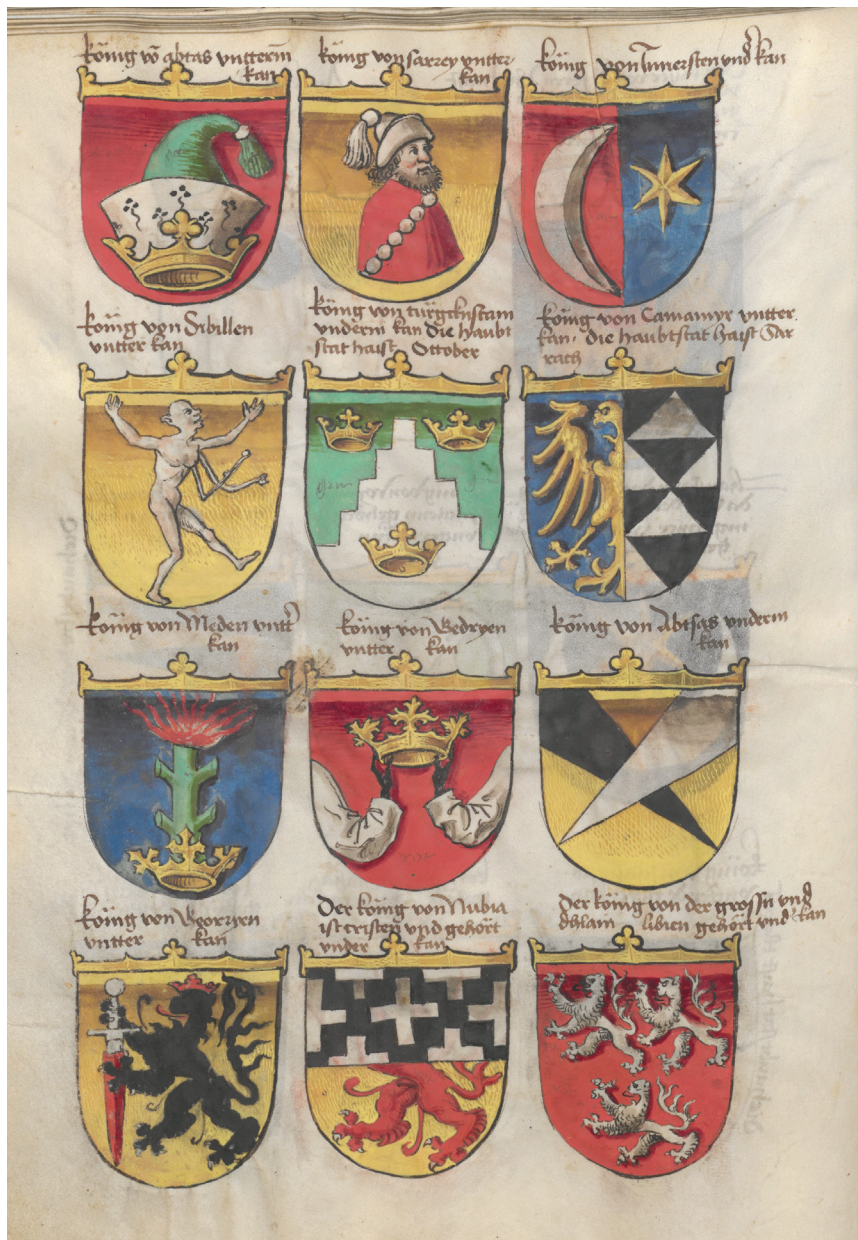 König vō abtas vntterm
kan
König von sarrey vntter
kan
König von Innersten vnd kan
König von Sibillen
vntter kan
König von türgknstam
vnderm kan die haubt
stat haist Ottober
König von Camamyr vntter
kan. die haubtstat haist Sar
rach
König von Meden vntt
kan
König von Bedryen
vntter kan
König von Abtsas vnderm
kan
König von Georryen
vntter kan
Der König von Nubia
ist cristen vnd gehört
vnder kan
Der König von der grossn vnd
libien gehört vnd kan